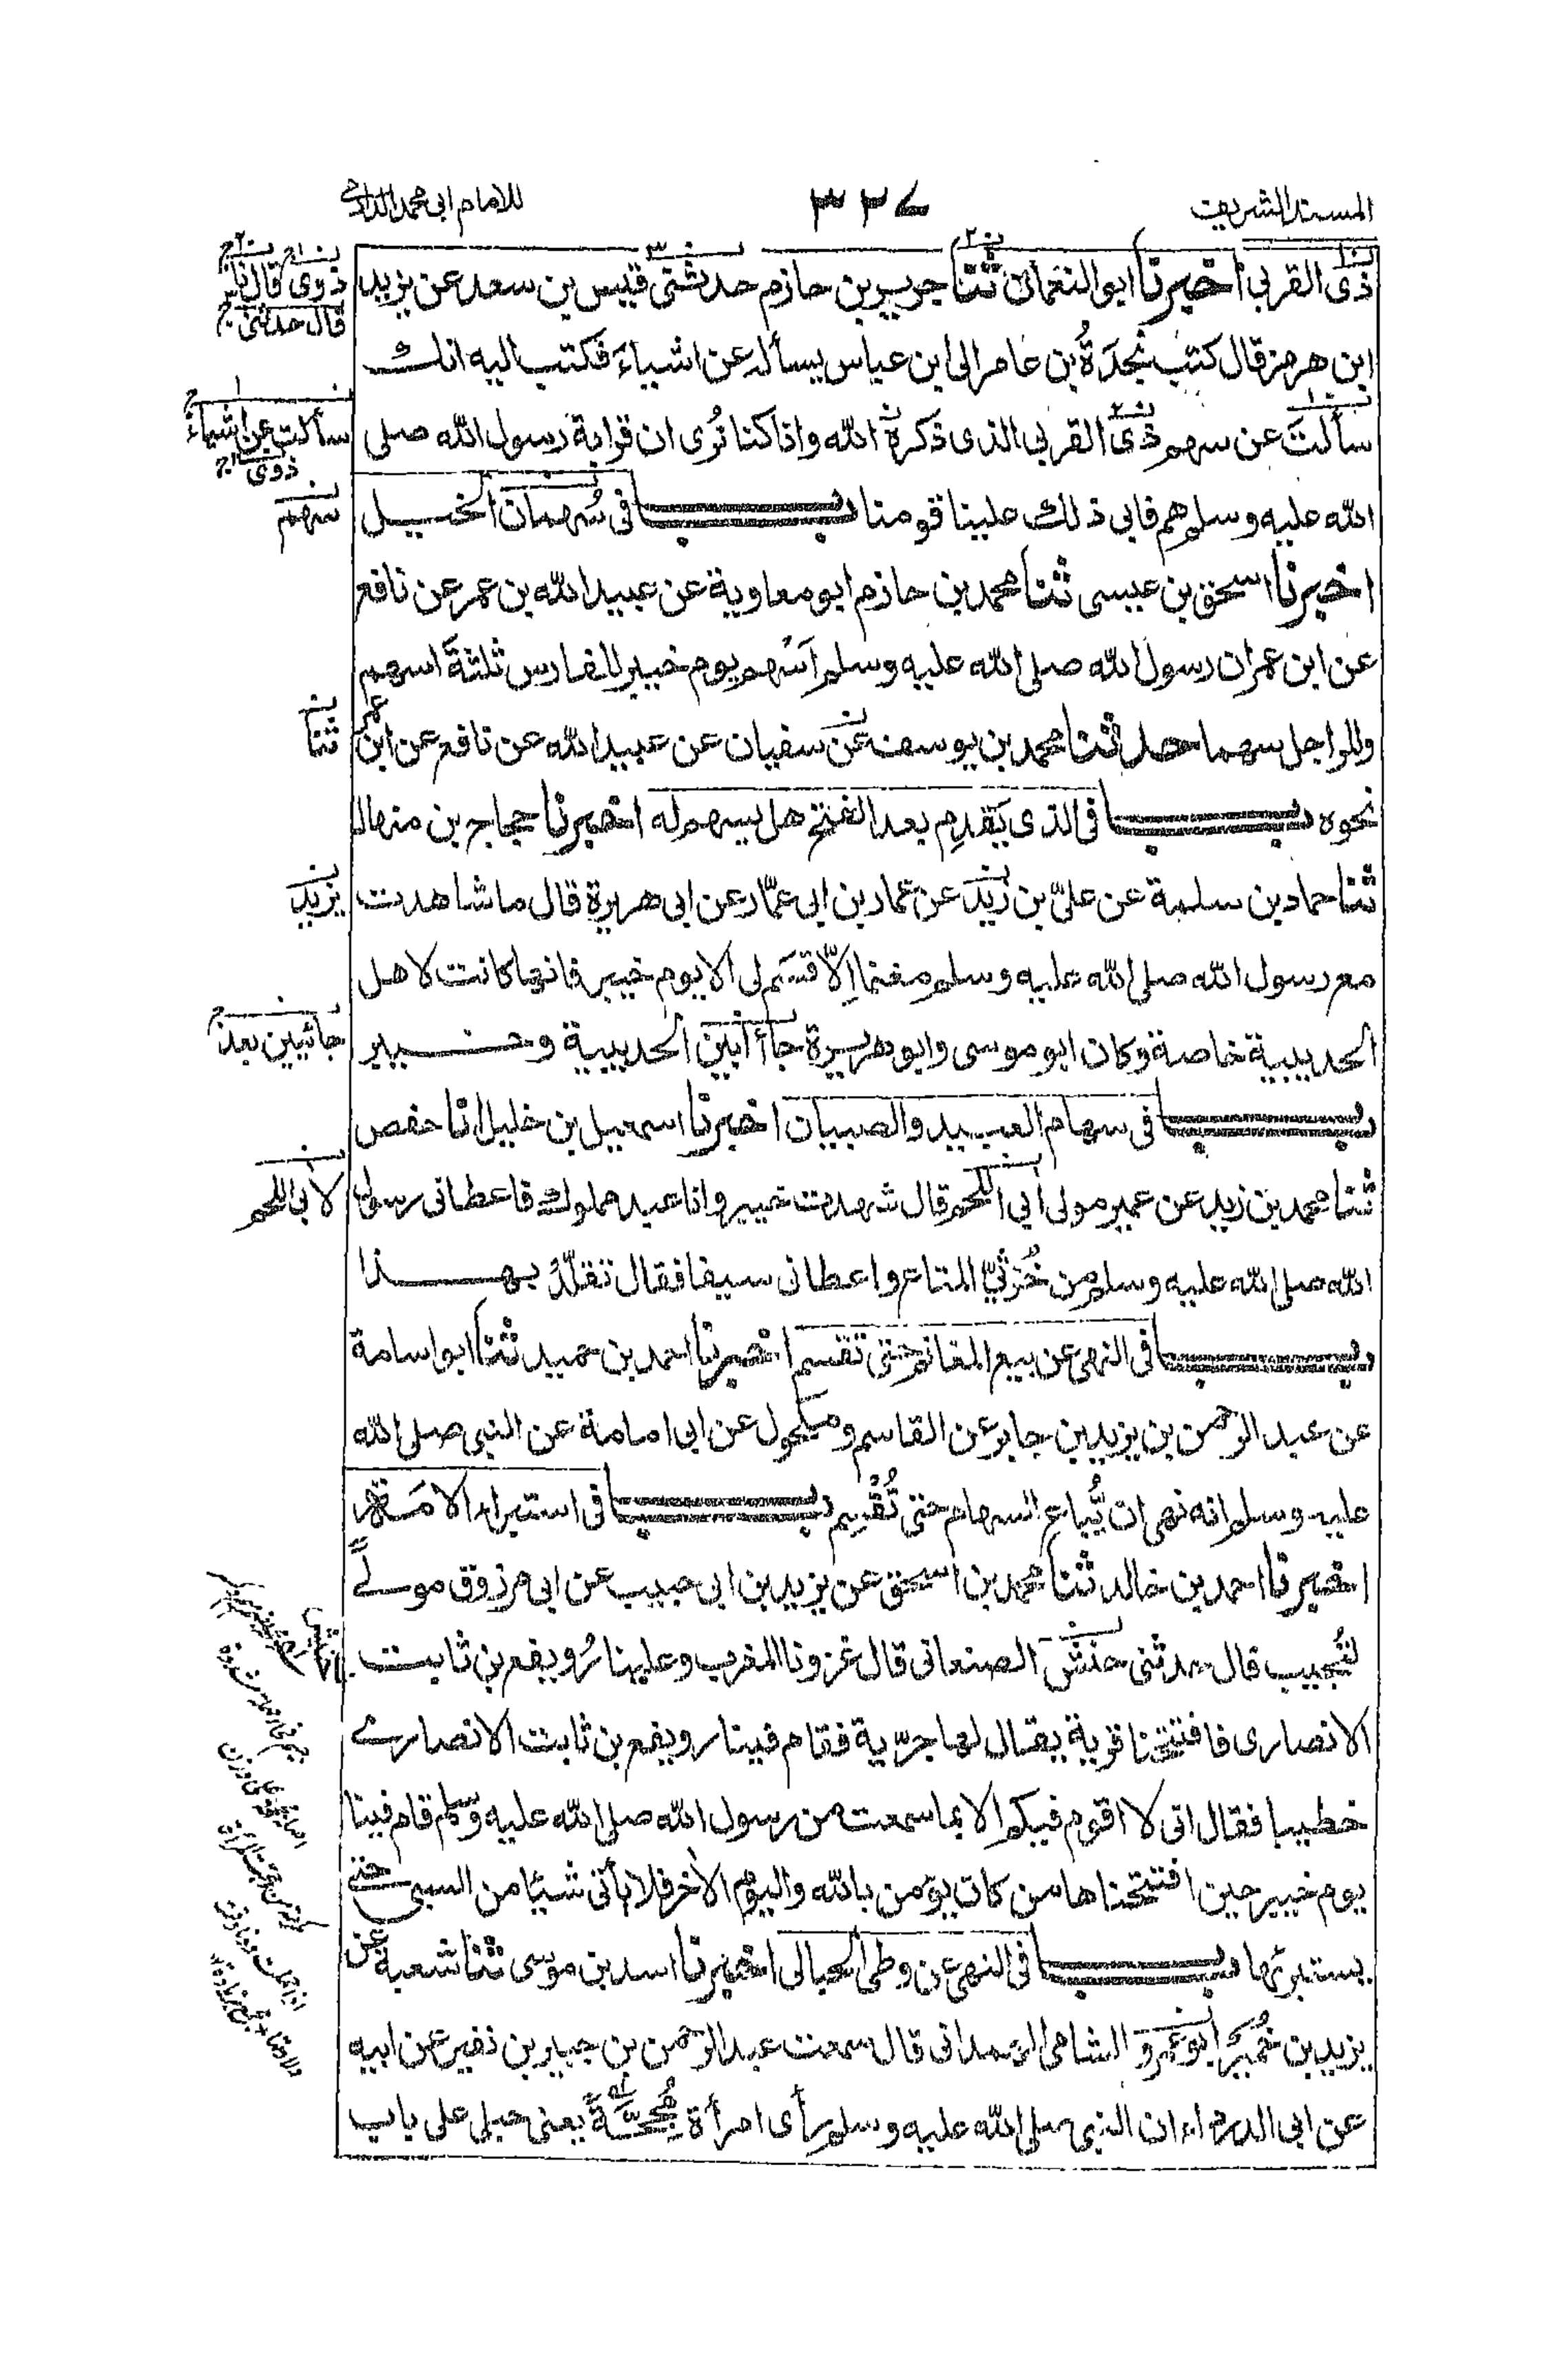 المسند الشريف ٣٢٧ للامام ابى محمد الدارمى
ذى القربى اخبرنا ابو النعمان ثنا جرير بن حازم حدثنى قيس بن سعد عن يزيد
ابن هرمز قال كتب نَجْدَةُ بن عامر الى ابن عباس يسأله عن اشياءَ فكتب اليه انك
سألتَ عن سهم ذى القربى الذى ذكره الله وانا كنا نُرى ان قرابة رسول الله صلى
الله عليه وسلم هم فابى ذلك علينا قومنا باب فى سُهمان الخيل
اخبرنا اسحق بن عيسى ثنا محمد بن حازم ابو معاوية عن عبيد الله بن عمر عن نافع
عن ابن عمر ان رسول الله صلى الله عليه وسلم اَسْهم يوم خيبر للفارس ثلثةَ اسهم
وللراجل سهما حدثنا محمد بن يوسف عن سفيان عن عبيد الله عن نافع عن ابن عمر
نحوه باب فى الذى يَقدم بعد الفتح هل يسهم له اخبرنا حجاج بن منهال
ثنا حماد بن سلمة عن علىّ بن زيد عن عمار بن ابى عمّار عن ابى هريرة قال ما شاهدت
مع رسول الله صلى الله عليه وسلم مغنما اِلاّ قَسَم لى الا يوم خيبر فانها كانت لاهل
الحديبية خاصة وكان ابو موسى وابو هريرة جاأا بَيْن الحديبية وخيبر
باب فى سهام العبيد والصبيان اخبرنا اسمعيل بن خليل انا حفص
ثنا محمد بن زيد عن عمير مولى آبى اللحم قال شهدت خيبر وانا عبد مملوك فاعطانى رسول
الله صلى الله عليه وسلم من خُرْثِىّ المتاع واعطانى سيفا فقال تقلَّدْ بهذا
باب فى النهى عن بيع المغانم حتى تقسم اخبرنا احمد بن حميد ثنا ابو اسامة
عن عبد الرحمن بن يزيد بن جابر عن القاسم ومكحول عن ابى امامة عن النبى صلى الله
عليه وسلم انه نهى ان يُّباع السهام حتى تُقْسم باب فى استبراء الامَة
اخبرنا احمد بن خالد ثنا محمد بن اسحق عن يزيد بن ابى حبيب عن ابى مرزوق مولًى
لتُجيب قال حدثنى حنش الصنعانى قال غزونا المغرب وعلينا رُويفع بن ثابت
الانصارى فافتتحنا قرية يقال لها جرّبة فقام فينا رويفع بن ثابت الانصارى
خطيبا فقال انى لا اقوم فيكم الا بما سمعت من رسول الله صلى الله عليه وسلم قام فينا
يوم خيبر حين افتتحناها من كان يؤمن بالله واليوم الآخر فلا يأتى شيئا من السبى حتى
يستبرئها باب فى النهى عن وطى الحبالى اخبرنا اسد بن موسى ثنا شعبة عن
يزيد بن خُمَير ابو عَمرو الشامى الهمدانى قال سمعت عبد الرحمن بن جبير بن نفير عن ابيه
عن ابى الدرداء ان النبى صلى الله عليه وسلم رأى امرأة مُجِحَّةً يعنى حبلى على باب
ذوى قال نا
قال حدثنى
سألت عن اشياء
ذوى
سهم
ثنا
يزيد
جائيين بعد
لابى اللحم